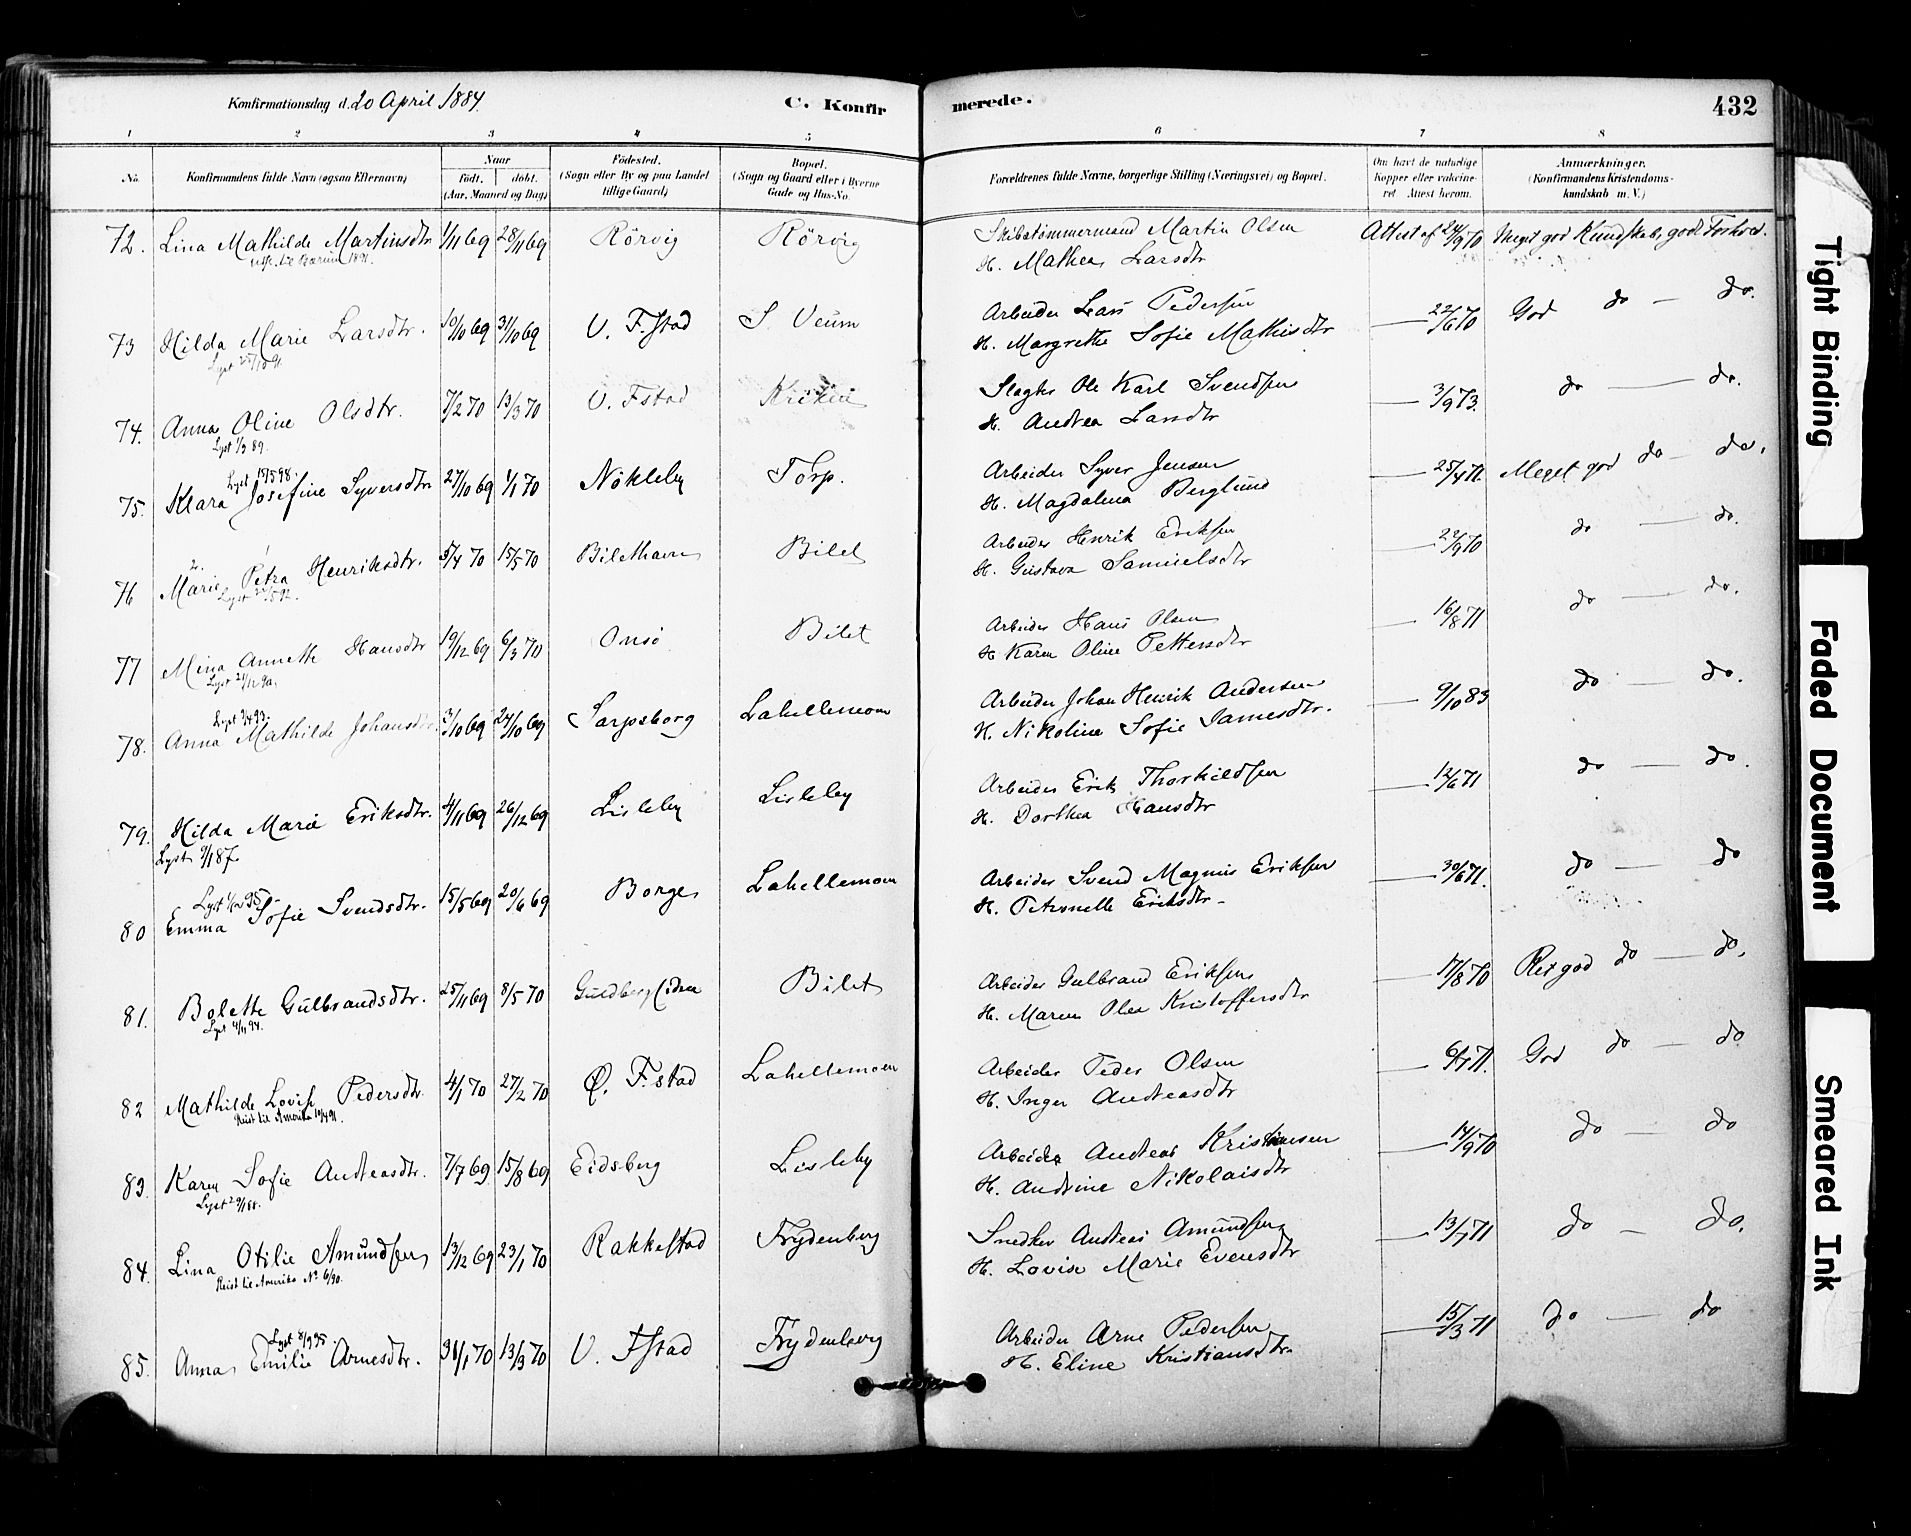 Konfirmationsdag d. 20 April 1884.
C. Konfir
merede.
432
1 2 3 4 5 6 7 8
No.
Konfirmandens fulde Navn (ogsaa Efternavn)
Naar
födt. döbt.
(Aar, Maaned og Dag)
Födested.
(Sogn eller By og paa Landet
tillige Gaard)
Bopæl.
(Sogn og Gaard eller i Byerne
Gade og Hus-No.
Forældrenes fulde Navne, borgerlige Stilling (Næringsvei) og Bopæl.
Om havt de naturlige
Kopper eller vakcine-
ret Attest herom.
Anmærkninger.
(Konfirmandens Kristendoms-
kundskab m. V.)
72. Lina Mathilde Martinsdtr 1/11 69 28/11 69 Rörvig Rörvig Skibstömmermand Martin Olsen Attest af 24/9 70 Meget god Kundskab, godt Forhold.
H. Mathea Larsdtr
73 Hilda Marie Larsdtr. 10/10 69 31/10 69 V. F.stad S. Veum Arbeider Lars Pedersen — 22/6 70 God do — do.
H. Margrethe Sofie Mathisdtr
74. Anna Oline Olsdtr. 7/2 70 13/3 70 V. Fstad Slagter Ole Karl Svendsen — 3/9 73. do — do.
Lyst 1/3 89. H. Andrea Larsdtr
Lyst 15/5 98.
75. Klara Josefine Syversdtr 27/10 69 1/1 70 Nökleby Torp. Arbeider Syver Jensen — 25/4 71. Meget god do — do.
H. Magdalena Berglund
76 Marie Petra Henriksdtr. 5/4 70 15/5 70 Bilethavn Bilet Arbeider Henrik Eriksen — 22/9 70 do — do.
H. Gustava Samuelsdtr
77 Mina Annette Hansdtr 19/12 69 6/3 70 Onsö Bilet Arbeider Hans Olsen — 16/8 71 do — do.
H. Karen Oline Pettersdtr
78. Anna Mathilde Johansdtr. 3/10 69 24/10 69 Sarpsborg Lahellemoen Arbeider Johan Henrik Andersen — 9/10 83 do — do.
H. Nikoline Sofie Jamesdtr.
79. Hilda Marie Eriksdtr. 4/11 69 26/12 69 Lisleby Lisleby Arbeider Erik Thorkildsen — 12/6 71 do — do.
Lyst 9/1 87. H. Dorthea Hansdtr
80 Emma Sofie Svendsdtr. 15/5 69 20/6 69 Borge Lahellemoen Arbeider Svend Magnus Eriksen — 30/6 71. do — do
H. Petronelle Eriksdtr.
81. Bolette Gulbrandsdtr. 25/11 69 8/5 70 Bilet Arbeider Gulbrand Eriksen — 17/8 70 Ret god do — do.
Lyst 4/11 94. H. Maren Olea Kristoffersdtr
82 Mathilde Lovise Pedersdtr 4/1 70 27/2 70 Ø. F.stad Lahellemoen Arbeider Peder Olsen God do — do
Reist til Amerika 10/4 91. H. Inger Andreasdtr
83. Karen Sofie Andreasdtr. 7/7 69 15/8 69 Eidsberg Lisleby Arbeider Andreas Kristiansen — 14/9 70 do — do
H. Andrine Nikolaisdtr
84. Lina Otilie Amundsen 13/12 69 23/1 70 Rakkestad Frydenberg Snedker Andreas Amundsen — 13/7 71 do — do.
Reist til Amerika No 6/90. H. Lovise Marie Evensdtr
Lyst 8/9 95.
85. Anna Emilie Arnesdtr. 31/1 70 13/3 70 V. Fstad Frydenberg Arbeider Arne Pedersen — 15/3 71 do — do
H. Eline Kristiansdtr.
Tight Binding
Faded Document
Smeared Ink